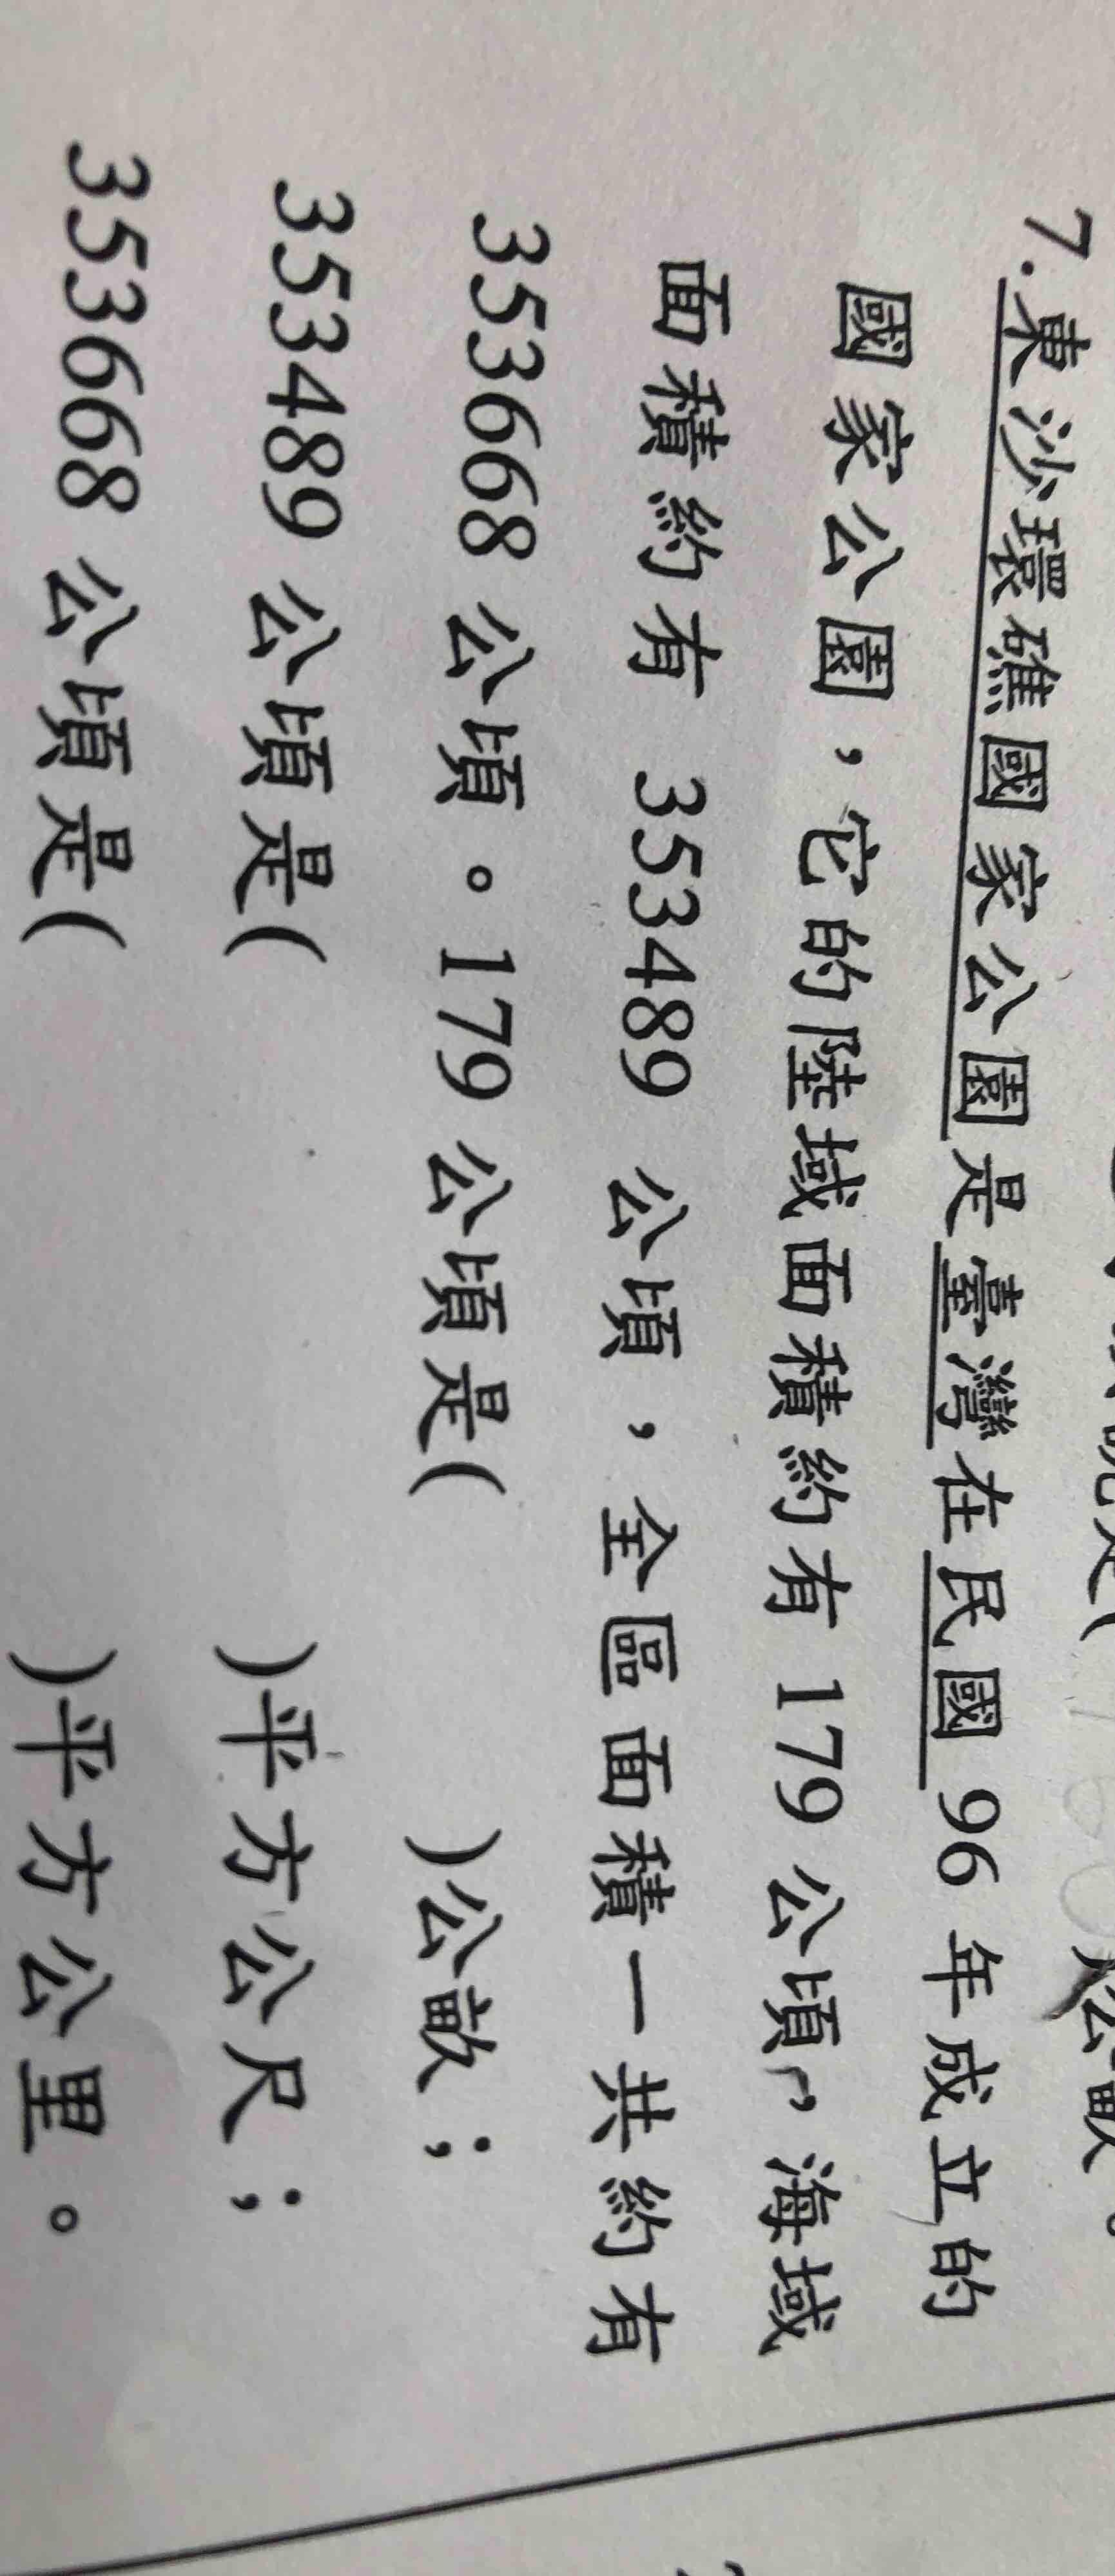 )公畝。
7.東沙環礁國家公園是臺灣在民國 96 年成立的
國家公園，它的陸域面積約有 179 公頃，海域
面積約有 353489 公頃，全區面積一共約有
353668 公頃。179 公頃是( )公畝；
353489 公頃是( )平方公尺；
353668 公頃是( )平方公里。